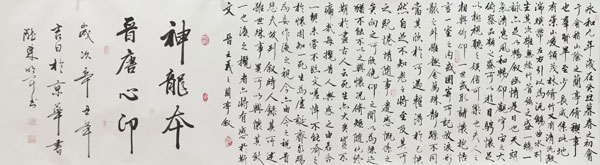 永和九年歲在癸丑暮春之初會
于會稽山陰之蘭亭修禊事
也群賢畢至少長咸集此地
有崇山峻領茂林修竹又有清流激
湍映帶左右引以為流觴曲水列
坐其次雖無絲竹管弦之盛一觴一
詠亦足以暢敘幽情是日也天朗氣
清惠風和暢仰觀宇宙之大
俯察品類之盛所以遊目騁懷足
以極視聽之娛信可樂也夫人之
相與俯仰一世或取諸懷抱悟
言一室之內或因寄所託放浪形
骸之外雖趣舍萬殊靜躁不同
當其欣於所遇暫得於己快
然自足不知老之將至及其所
之既倦情隨事遷感慨係之
矣向之所欣俛仰之間以為陳迹
猶不能不以之興懷況脩短隨化終
期於盡古人云死生亦大矣豈不
痛哉每攬昔人興感之由若合
一契未嘗不臨文嗟悼不能喻之
於懷固知一死生為虛誕齊彭殤
為妄作後之視今亦由今之視昔
悲夫故列敘時人錄其所述
雖世殊事異所以興懷其致
一也後之攬者亦將有感於斯
文 晉王羲之蘭亭敘
神龍本
晉唐心印
歲次辛丑年
吉日於京華書